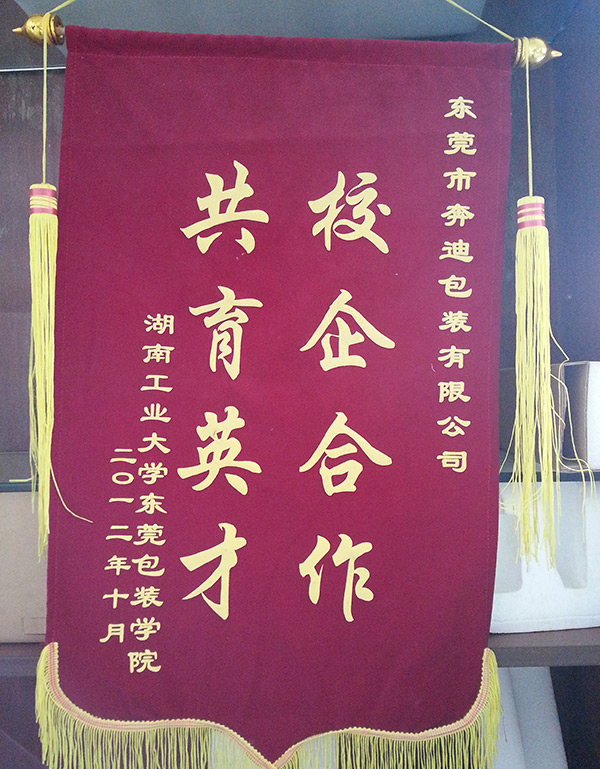 东莞市奔迪包装有限公司
校企合作
共育英才
湖南工业大学东莞包装学院
二〇一二年十月